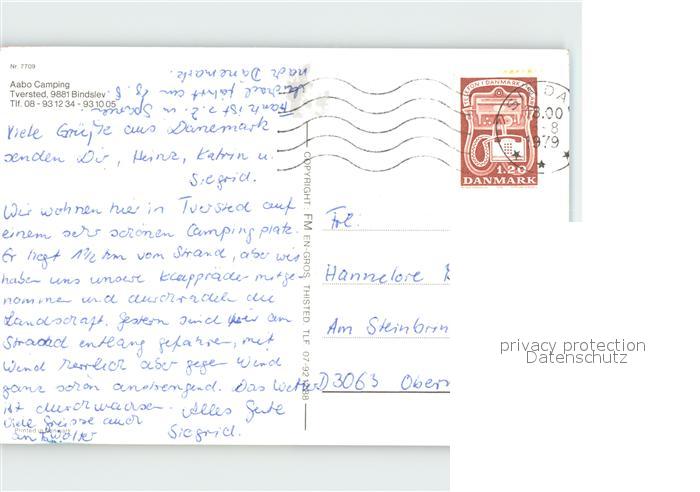 Nr. 7709
Aabo Camping
Tversted, 9881 Bindslev
Tlf. 08 - 93 12 34 - 93 10 05
Frank ist z.Z. in Spanien
Michael fährt am 18. 8.
nach Dänemark.
Viele Grüße aus Dänemark
senden Dir, Heinz, Katrin u.
Siegrid.
Wir wohnen hier in Tversted auf
einem sehr schönen Campingplatz.
Er liegt 1½ km vom Strand, aber wir
haben uns unsere Klappräder mitge-
nommen und durchradeln die
Landschaft. Gestern sind wir am
Strand entlang gefahren, mit
Wind herrlich aber gegen Wind
ganz schön anstrengend. Das Wetter
ist durchwachsen. Alles Gute
Viele Grüsse auch
an Walter
Siegrid.
Printed in Denmark
COPYRIGHT: FM EN-GROS, THISTED TLF 07-92
TELEFON I DANMARK
1.20
DANMARK
18.00
-8
1979
Frl.
Hannelore
Am Steinbrin
D 3063 Obern
privacy protection
Datenschutz